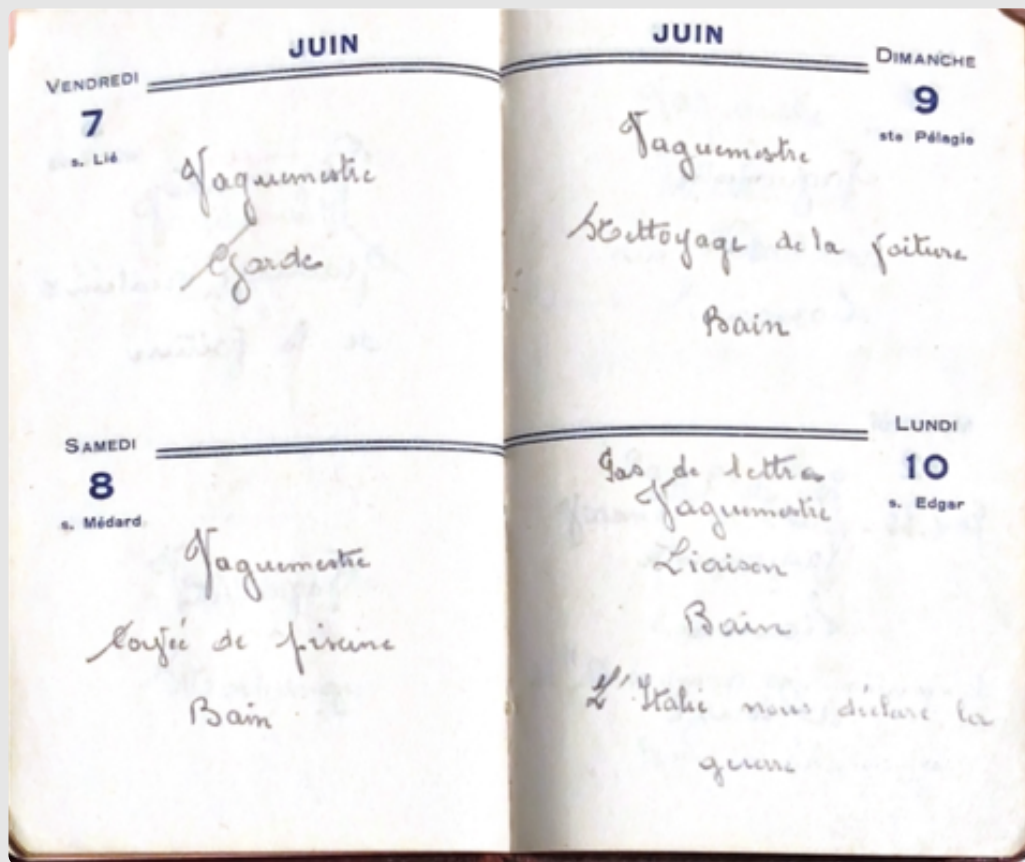 JUIN
VENDREDI
7
s. Lié
Vaguemestre
Garde
SAMEDI
8
s. Médard
Vaguemestre
Corvée de piscine
Bain
JUIN
DIMANCHE
9
ste Pélagie
Vaguemestre
Nettoyage de la voiture
Bain
LUNDI
10
s. Edgar
Pas de lettres
Vaguemestre
Liaison
Bain
L'Italie nous déclare la
guerre